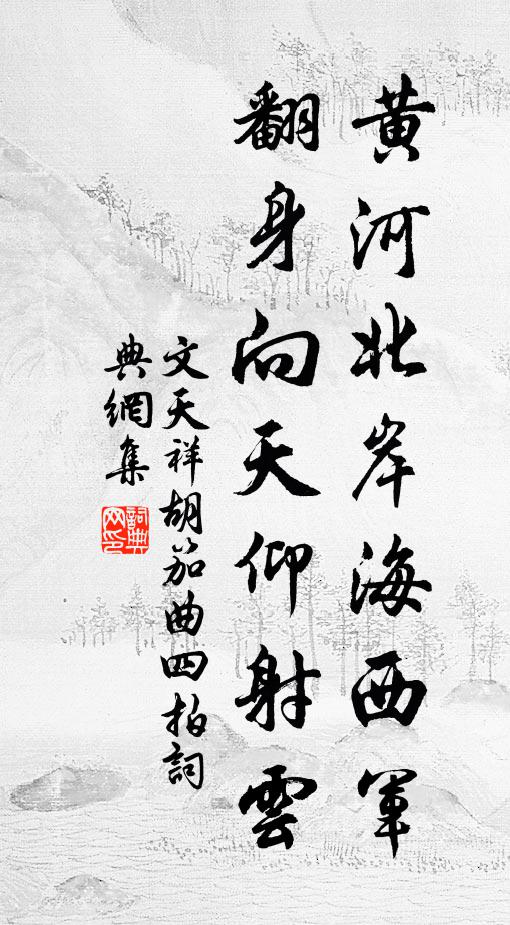 黄河北岸海西軍
翻身向天仰射雲
文天祥胡笳曲四拍詞
典網集
詞典網印